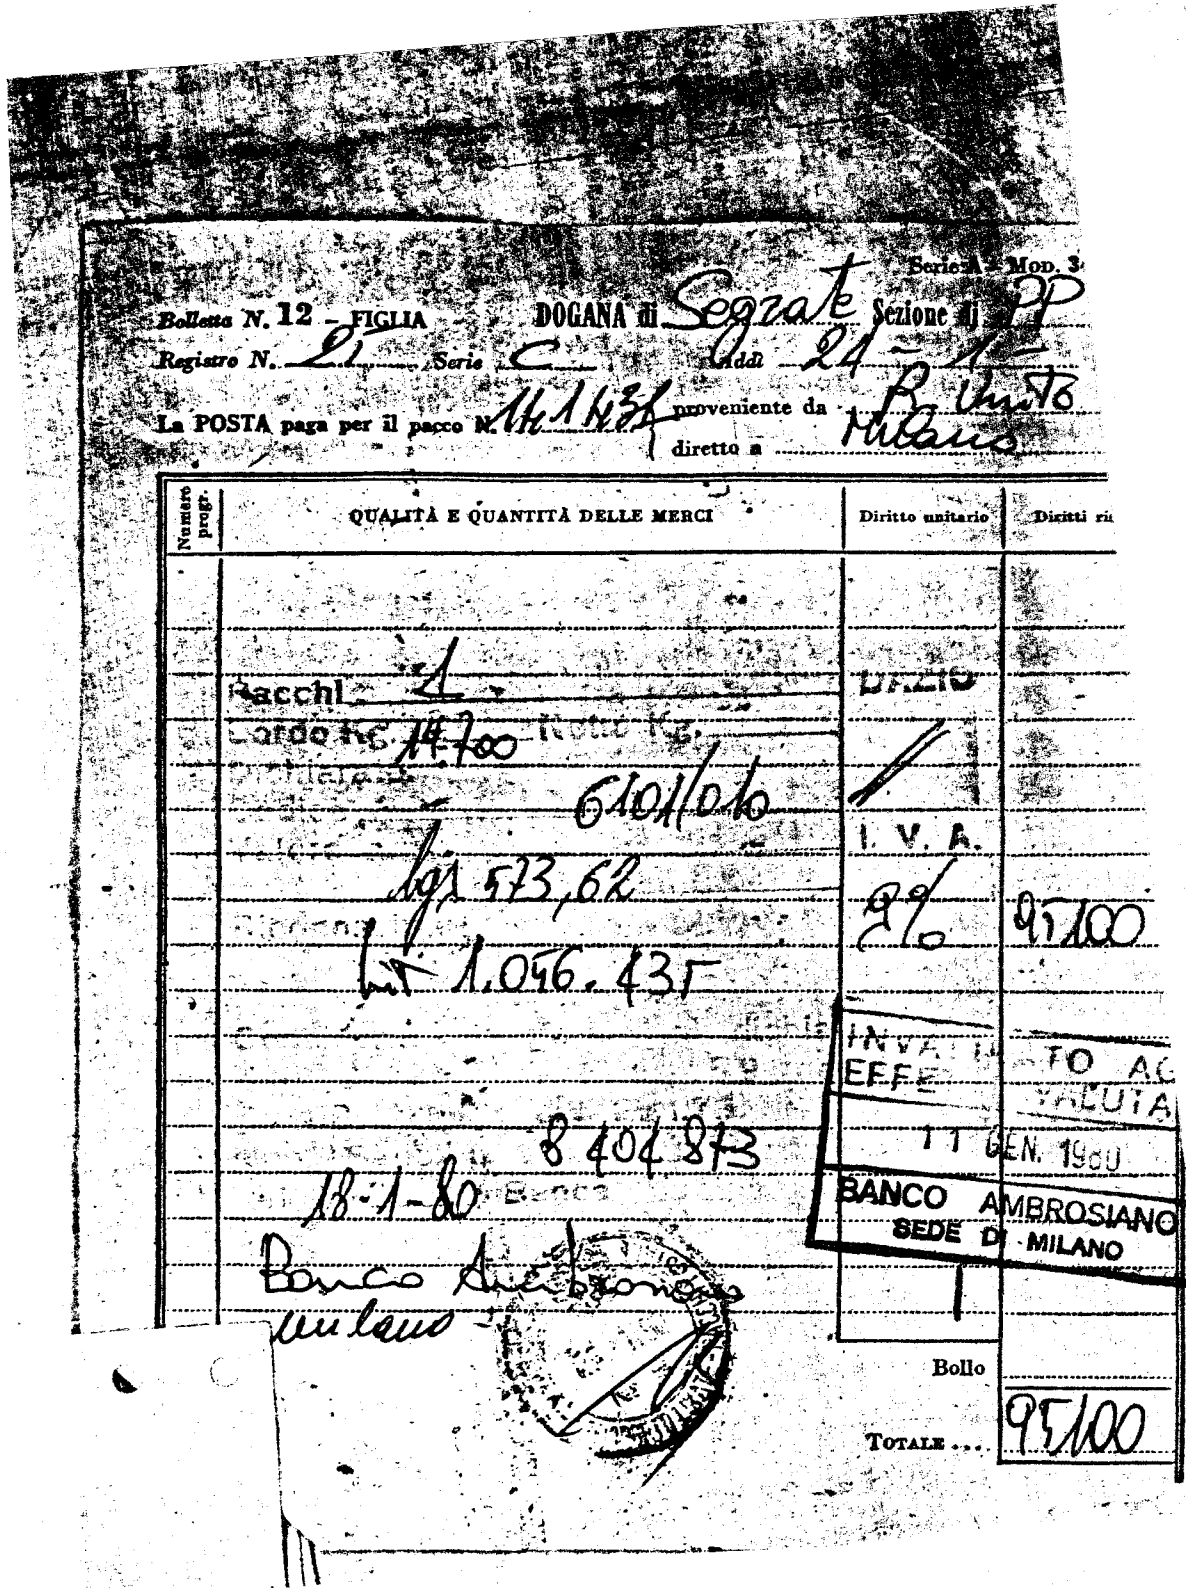 Serie A - Mod. 3
Bolletta N. 12 - FIGLIA DOGANA di Segrate Sezione di PP
Registro N. 21 Serie C Addì 24 - 1 -
La POSTA paga per il pacco N. proveniente da R. Unito
diretto a Milano
Numero progr. QUALITÀ E QUANTITÀ DELLE MERCI Diritto unitario Diritti ri
Pacchi 1 DAZIO
Lordo Kg. 14.700 Netto Kg.
6101/010
I. V. A.
Lgs 573,62
9% 95100
Lit 1.046.435
INVA TO AG
EFFE VALUTA
8 404 873
11 GEN. 1980
18-1-80 Banca
BANCO AMBROSIANO
SEDE DI MILANO
Banco Ambrosiano
Milano
Bollo
TOTALE ... 95100